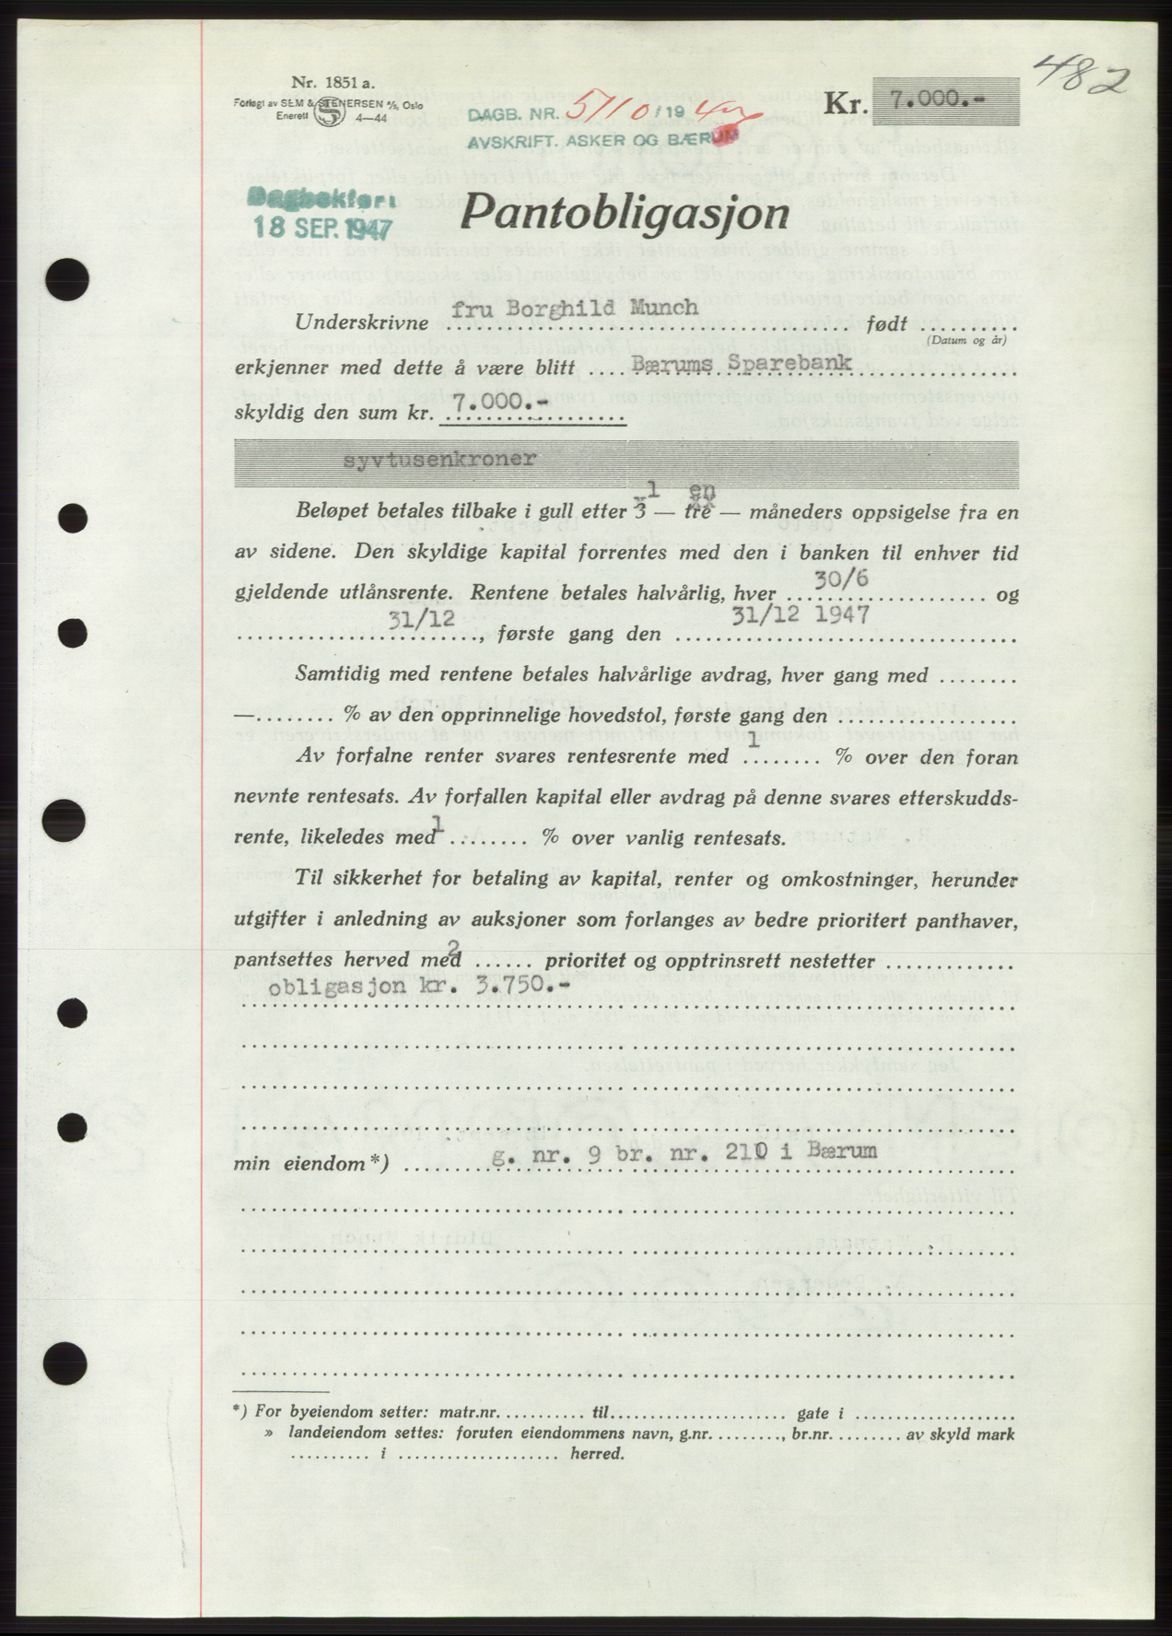 482
Nr. 1851 a.
Forlagt av SEM & STENERSEN A/S, Oslo
Enerett S 4—44
DAGB. NR. 5110/19 47
AVSKRIFT. ASKER OG BÆRUM
Kr. 7.000.-
Dagbokført
18 SEP. 1947
Pantobligasjon
Underskrivne fru Borghild Munch født ..........
(Datum og år)
erkjenner med dette å være blitt .... Bærums Sparebank
skyldig den sum kr. 7.000.-
syvtusenkroner
1 en
Beløpet betales tilbake i gull etter 3 — tre — måneders oppsigelse fra en
av sidene. Den skyldige kapital forrentes med den i banken til enhver tid
gjeldende utlånsrente. Rentene betales halvårlig, hver 30/6 og
31/12, første gang den 31/12 1947
Samtidig med rentene betales halvårlige avdrag, hver gang med ........
—........ % av den opprinnelige hovedstol, første gang den ..................
Av forfalne renter svares rentesrente med 1 % over den foran
nevnte rentesats. Av forfallen kapital eller avdrag på denne svares etterskudds-
rente, likeledes med 1 % over vanlig rentesats.
Til sikkerhet for betaling av kapital, renter og omkostninger, herunder
utgifter i anledning av auksjoner som forlanges av bedre prioritert panthaver,
pantsettes herved med 2 prioritet og opptrinsrett nestetter .............
obligasjon kr. 3.750.-
min eiendom *) g. nr. 9 br. nr. 210 i Bærum
*) For byeiendom setter: matr.nr. ........... til ...................... gate i ....................
» landeiendom settes: foruten eiendommens navn, g.nr. ........., br.nr. ......... av skyld mark
.......... i .................... herred.